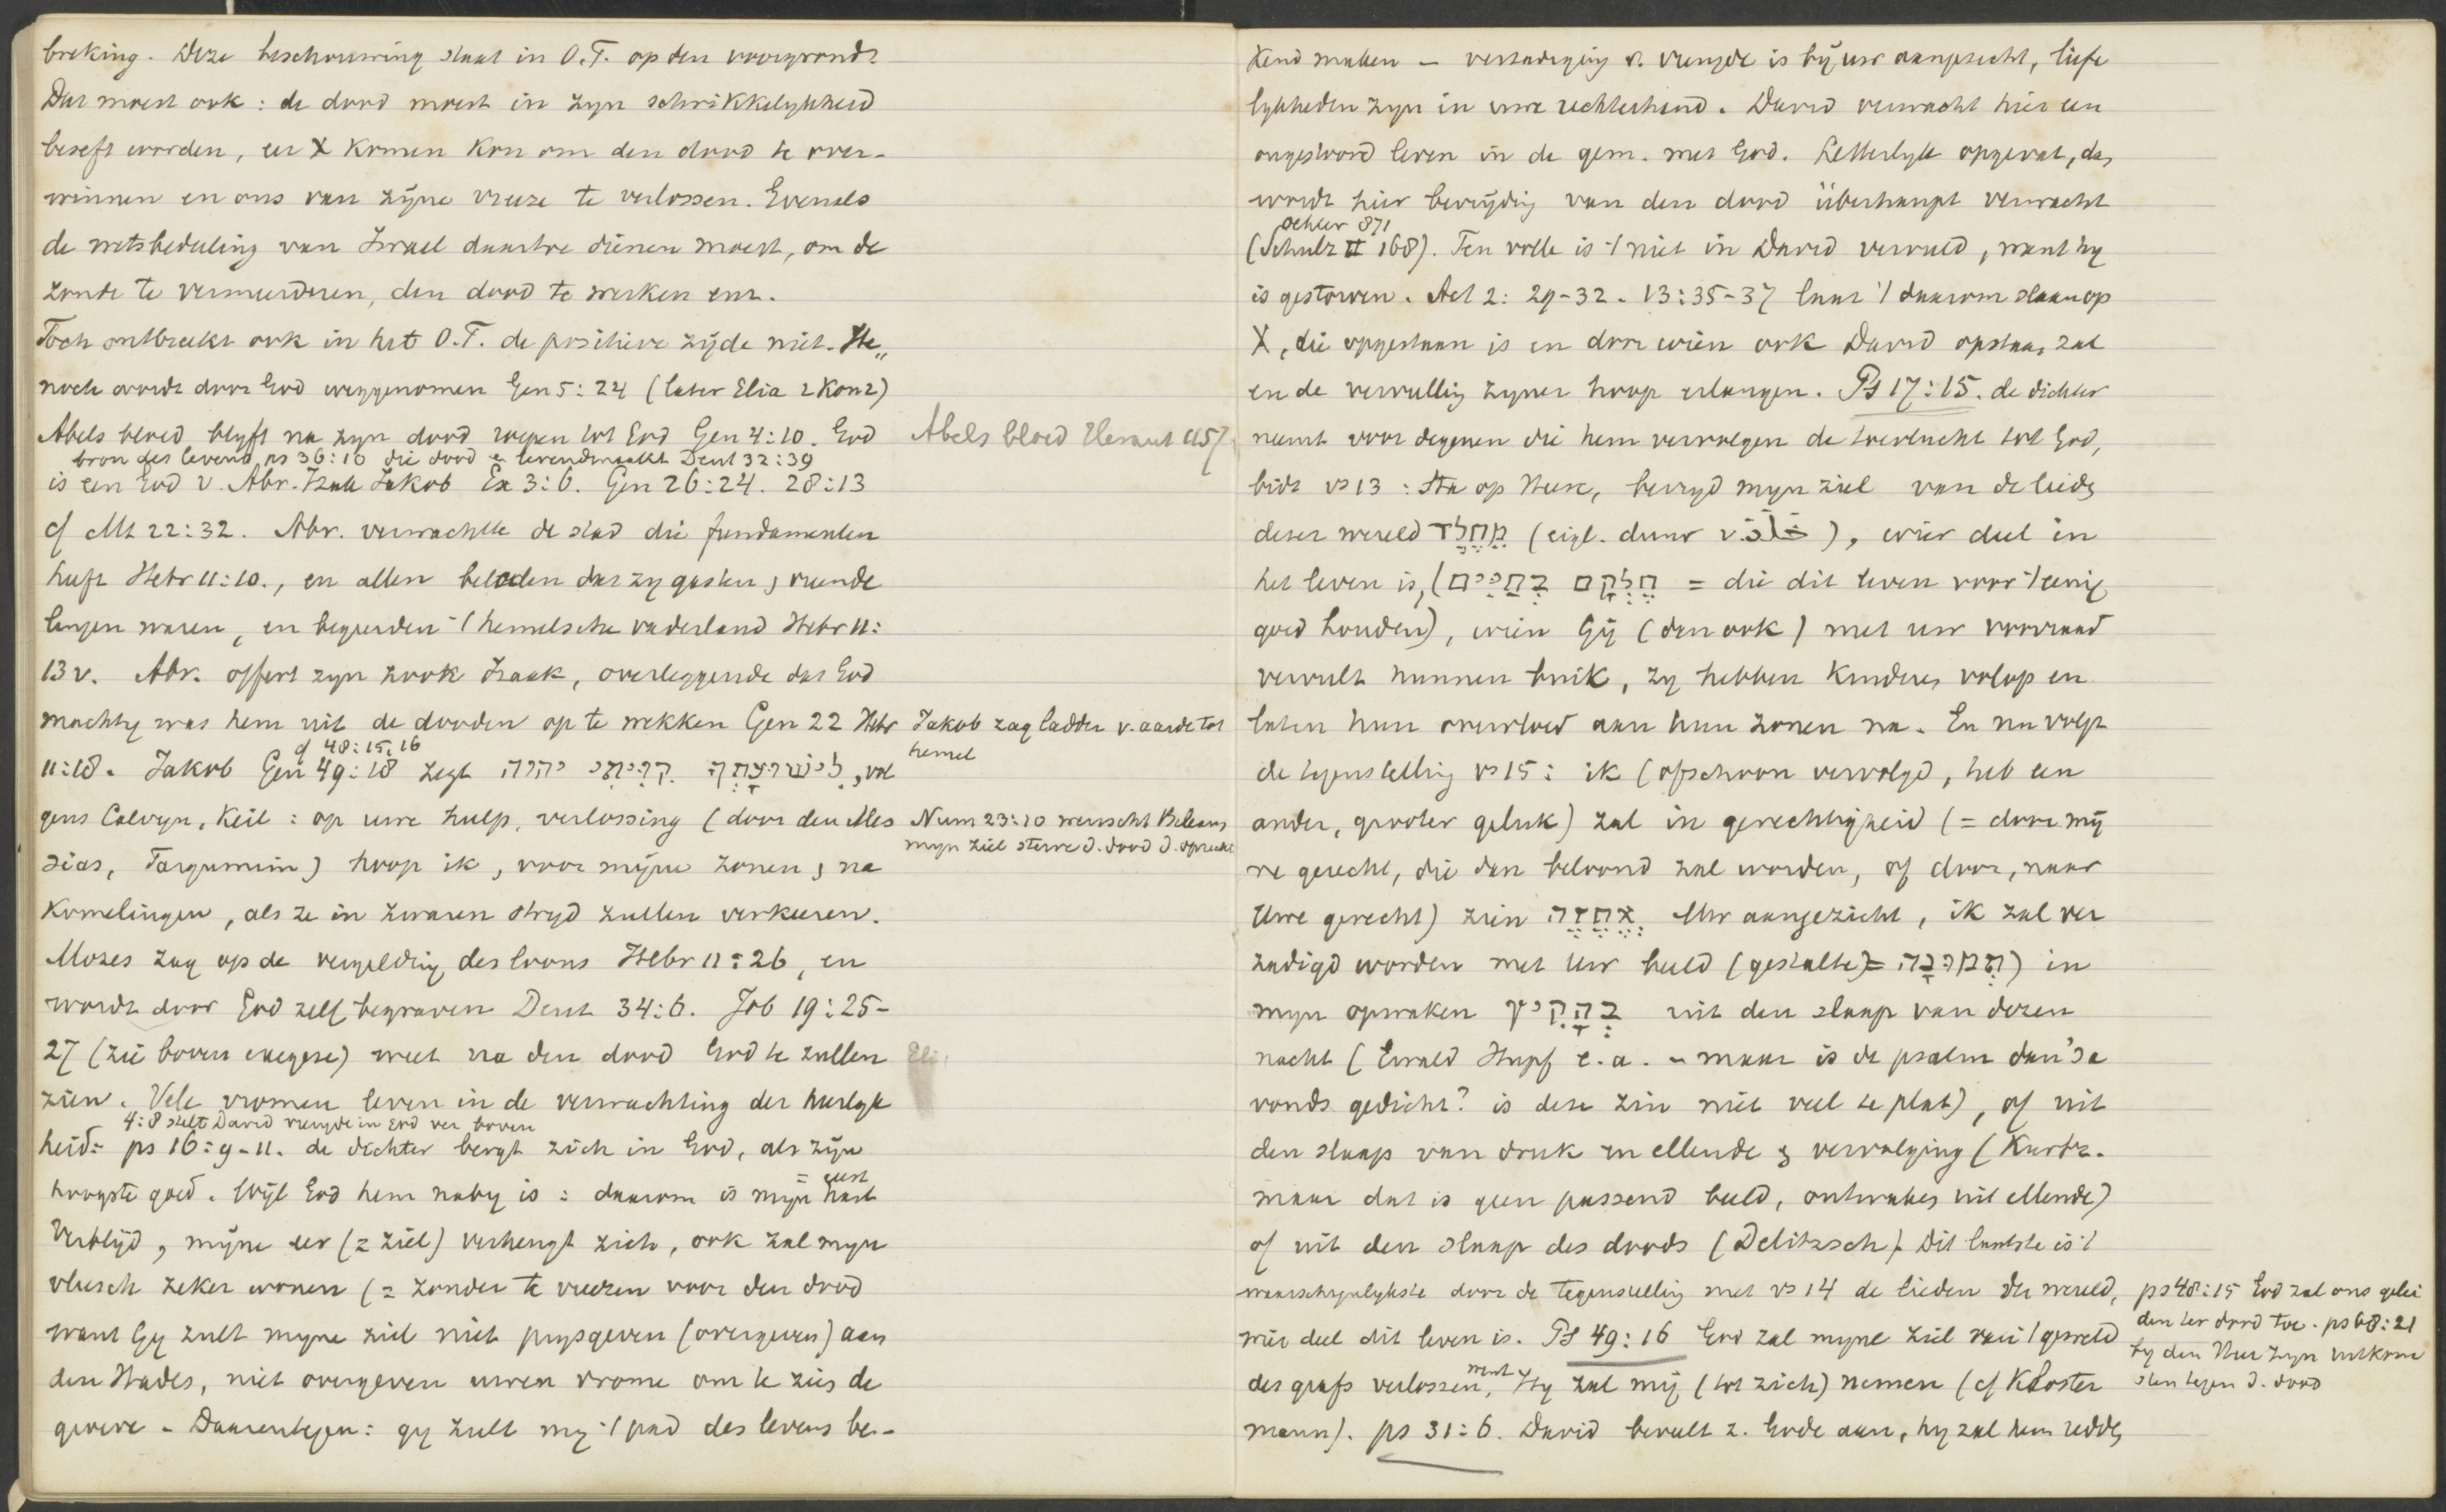 breking. Deze beschouwing staat in O.T. op den voorgrond.
Dat moest ook: de dood moest in zyn schrikkelykheid
beseft worden, eer X komen kon om den dood te over-
winnen en ons van zijne vreeze te verlossen. Evenals
de wetsbedeeling van Israel daartoe dienen moest, om de
zonde te vermeerderen, den dood te werken enz.
Toch ontbreekt ook in het O.T. de positieve zijde niet. He„
noch wordt door God weggenomen Gen 5:24 (later Elia 2 Kon 2)
Abels bloed blyft na zyn dood roepen tot God Gen 4:10. God
Abels bloed Heraut 457
bron des levens ps 36:10 die dood en levendmaakt Deut 32:39
is een God v. Abr. Izak Jakob Ex 3:6. Gen 26:24. 28:13
cf Mt 22:32. Abr. verwachtte de stad die fundamenten
heeft Hebr 11:10., en allen beleden dat zy gasten, vreemde
lingen waren, en begeerden 't hemelsche vaderland Hebr 11:
13v. Abr. offert zyn zook Izaak, overleggende dat God
machtig was hem uit de dooden op te wekken Gen 22 Hebr
Jakob zag ladder v. aarde tot
hemel
cf 48:15,16
11:18. Jakob Gen 49:18 zegt לִישׁוּעָתְךָ קִוִּיתִי יהוה, vol
gens Calvyn, Keil: op uwe hulp, verlossing (door den Mes
Num 23:10 wenscht Bileam
myn ziel sterve d. dood d. oprecht
sias, Targumim) hoop ik, voor mijne zonen, na
komelingen, als ze in zwaren stryd zullen verkeeren.
Mozes zag op de vergelding des loons Hebr 11:26, en
wordt door God zelf begraven Deut 34:6. Job 19:25-
27 (zie boven exegese) weet na den dood God te zullen
Eli
zien. Vele vromen leven in de verwachting der heerlyk
4:8 stelt David vreugde in God ver boven
heid: ps 16:9-11. de dichter bergt zich in God, als zijn
hoogste goed. Wijl God hem naby is: daarom is mijn hart
verblijd, mijne eer (= ziel) verheugt zich, ook zal myn
vleesch zeker wonen (= zonder te vreezen voor den dood
want Gy zult myne ziel niet prysgeven (overgeven) aan
den Hades, niet overgeven uwen vrome om te zien de
groeve - Daarentegen: gy zult my 't pad des levens be-
kend maken - verzadiging v. vreugde is bij uw aangezicht, liefe
lykheden zyn in uwe rechterhand. David verwacht hier een
ongestoord leven in de gem. met God. Letterlyk opgevat, dan
wordt hier bevrijding van den dood überhaupt verwacht
Oehler 871
(Schulz II 168). Ten volle is 't niet in David vervuld, want hy
is gestorven. Act 2:29-32. 13:35-37 laat 't daarom slaan op
X, die opgestaan is en door wien ook David opstaan zal
en de vervulling zyner hoop erlangen. Ps 17:15. de dichter
neemt voor degenen die hem vervolgen de toevlucht tot God,
bidt vs 13: Sta op Heere, bevryd myn ziel van de lieden
dezer wereld מֵחֶלֶד (eigl. duur v. ), wier deel in
het leven is, (חֶלְקָם בַּחַיִּים = die dit leven voor 't eenig
goed houden), wien Gij (dan ook) met uw voorraad
vervult hunnen buik, zy hebben kinderen volop en
laten hun overvloed aan hun zonen na. En nu volgt
de tegenstelling vs 15: ik (ofschoon vervolgd, heb een
ander, grooter geluk) zal in gerechtigheid (= door mij
ne gerecht, die dan beloond zal worden, of door, naar
Uwe gerecht) zien אֶחֱזֶה Uw aangezicht, ik zal ver
zadigd worden met Uw beeld (gestalte) = תְּמוּנָה) in
myn opwaken בְּהָקִיץ uit den slaap van dezen
nacht (Ewald Hupf e.a. - maar is de psalm dan 's a
vonds gedicht? is deze zin niet veel te plat), of uit
den slaap van druk en ellende & vervolging (Kurtz.
maar dat is geen passend beeld, ontwaken uit ellende)
of uit den slaap des doods (Delitzsch). Dit laatste is 't
waarschynlykste door de tegenstelling met vs 14 de lieden der wereld,
ps 48:15 God zal ons gelei
den ter dood toe. ps 68:21
wier deel dit leven is. Ps 49:16 God zal myne ziel van 't geweld
by den Heer zyn uitkom
des grafs verlossen, want Hy zal mij (tot zich) nemen (cf Kloster
sten tegen d. dood
mann). ps 31:6. David beveelt z. Gode aan, hy zal hem redden